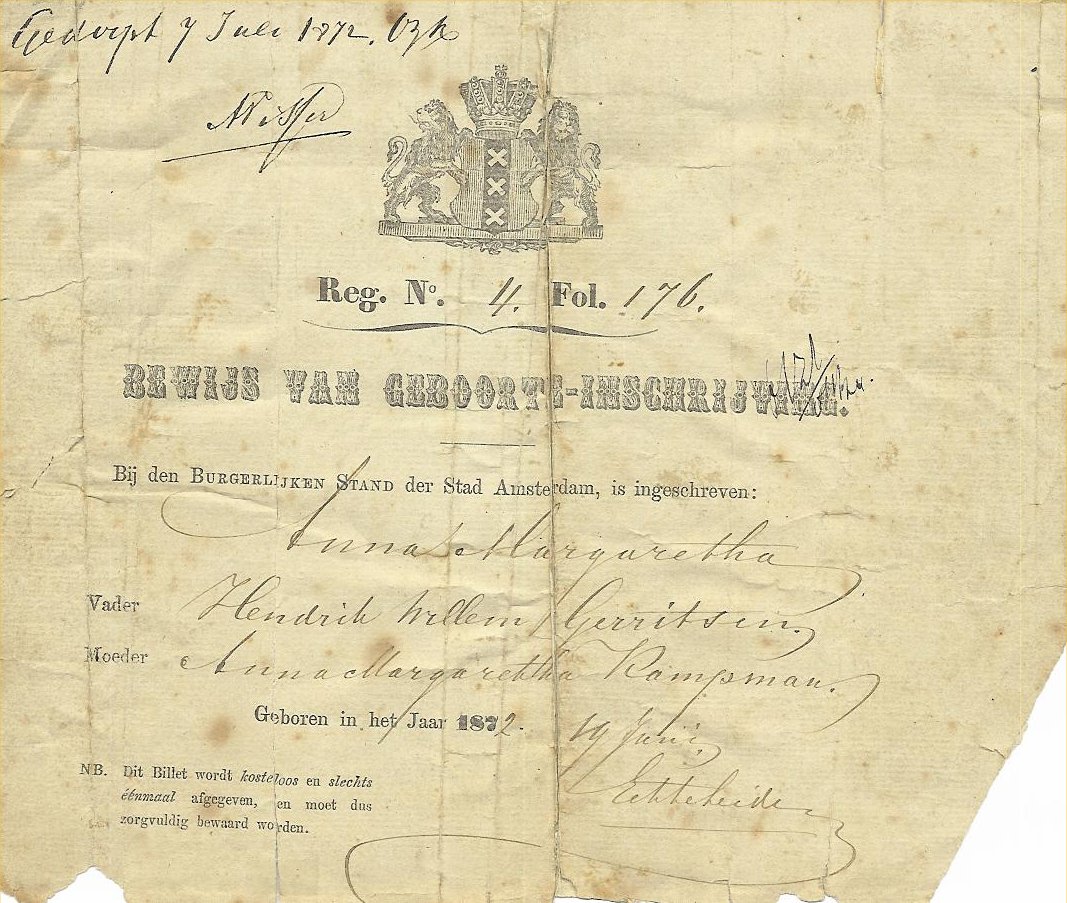 Gedoopt 7 Juli 1872. OZK
Reg. No. 4. Fol. 176.
BEWIJS VAN GEBOORTE-INSCHRIJVING.
Bij den BURGERLIJKEN STAND der Stad Amsterdam, is ingeschreven:
Anna Margaretha
Vader Hendrik Willem Gerritsen.
Moeder Anna Margaretha Kampman.
Geboren in het Jaar 1872. 19 Junij
NB. Dit Billet wordt kosteloos en slechts
éénmaal afgegeven, en moet dus
zorgvuldig bewaard worden.